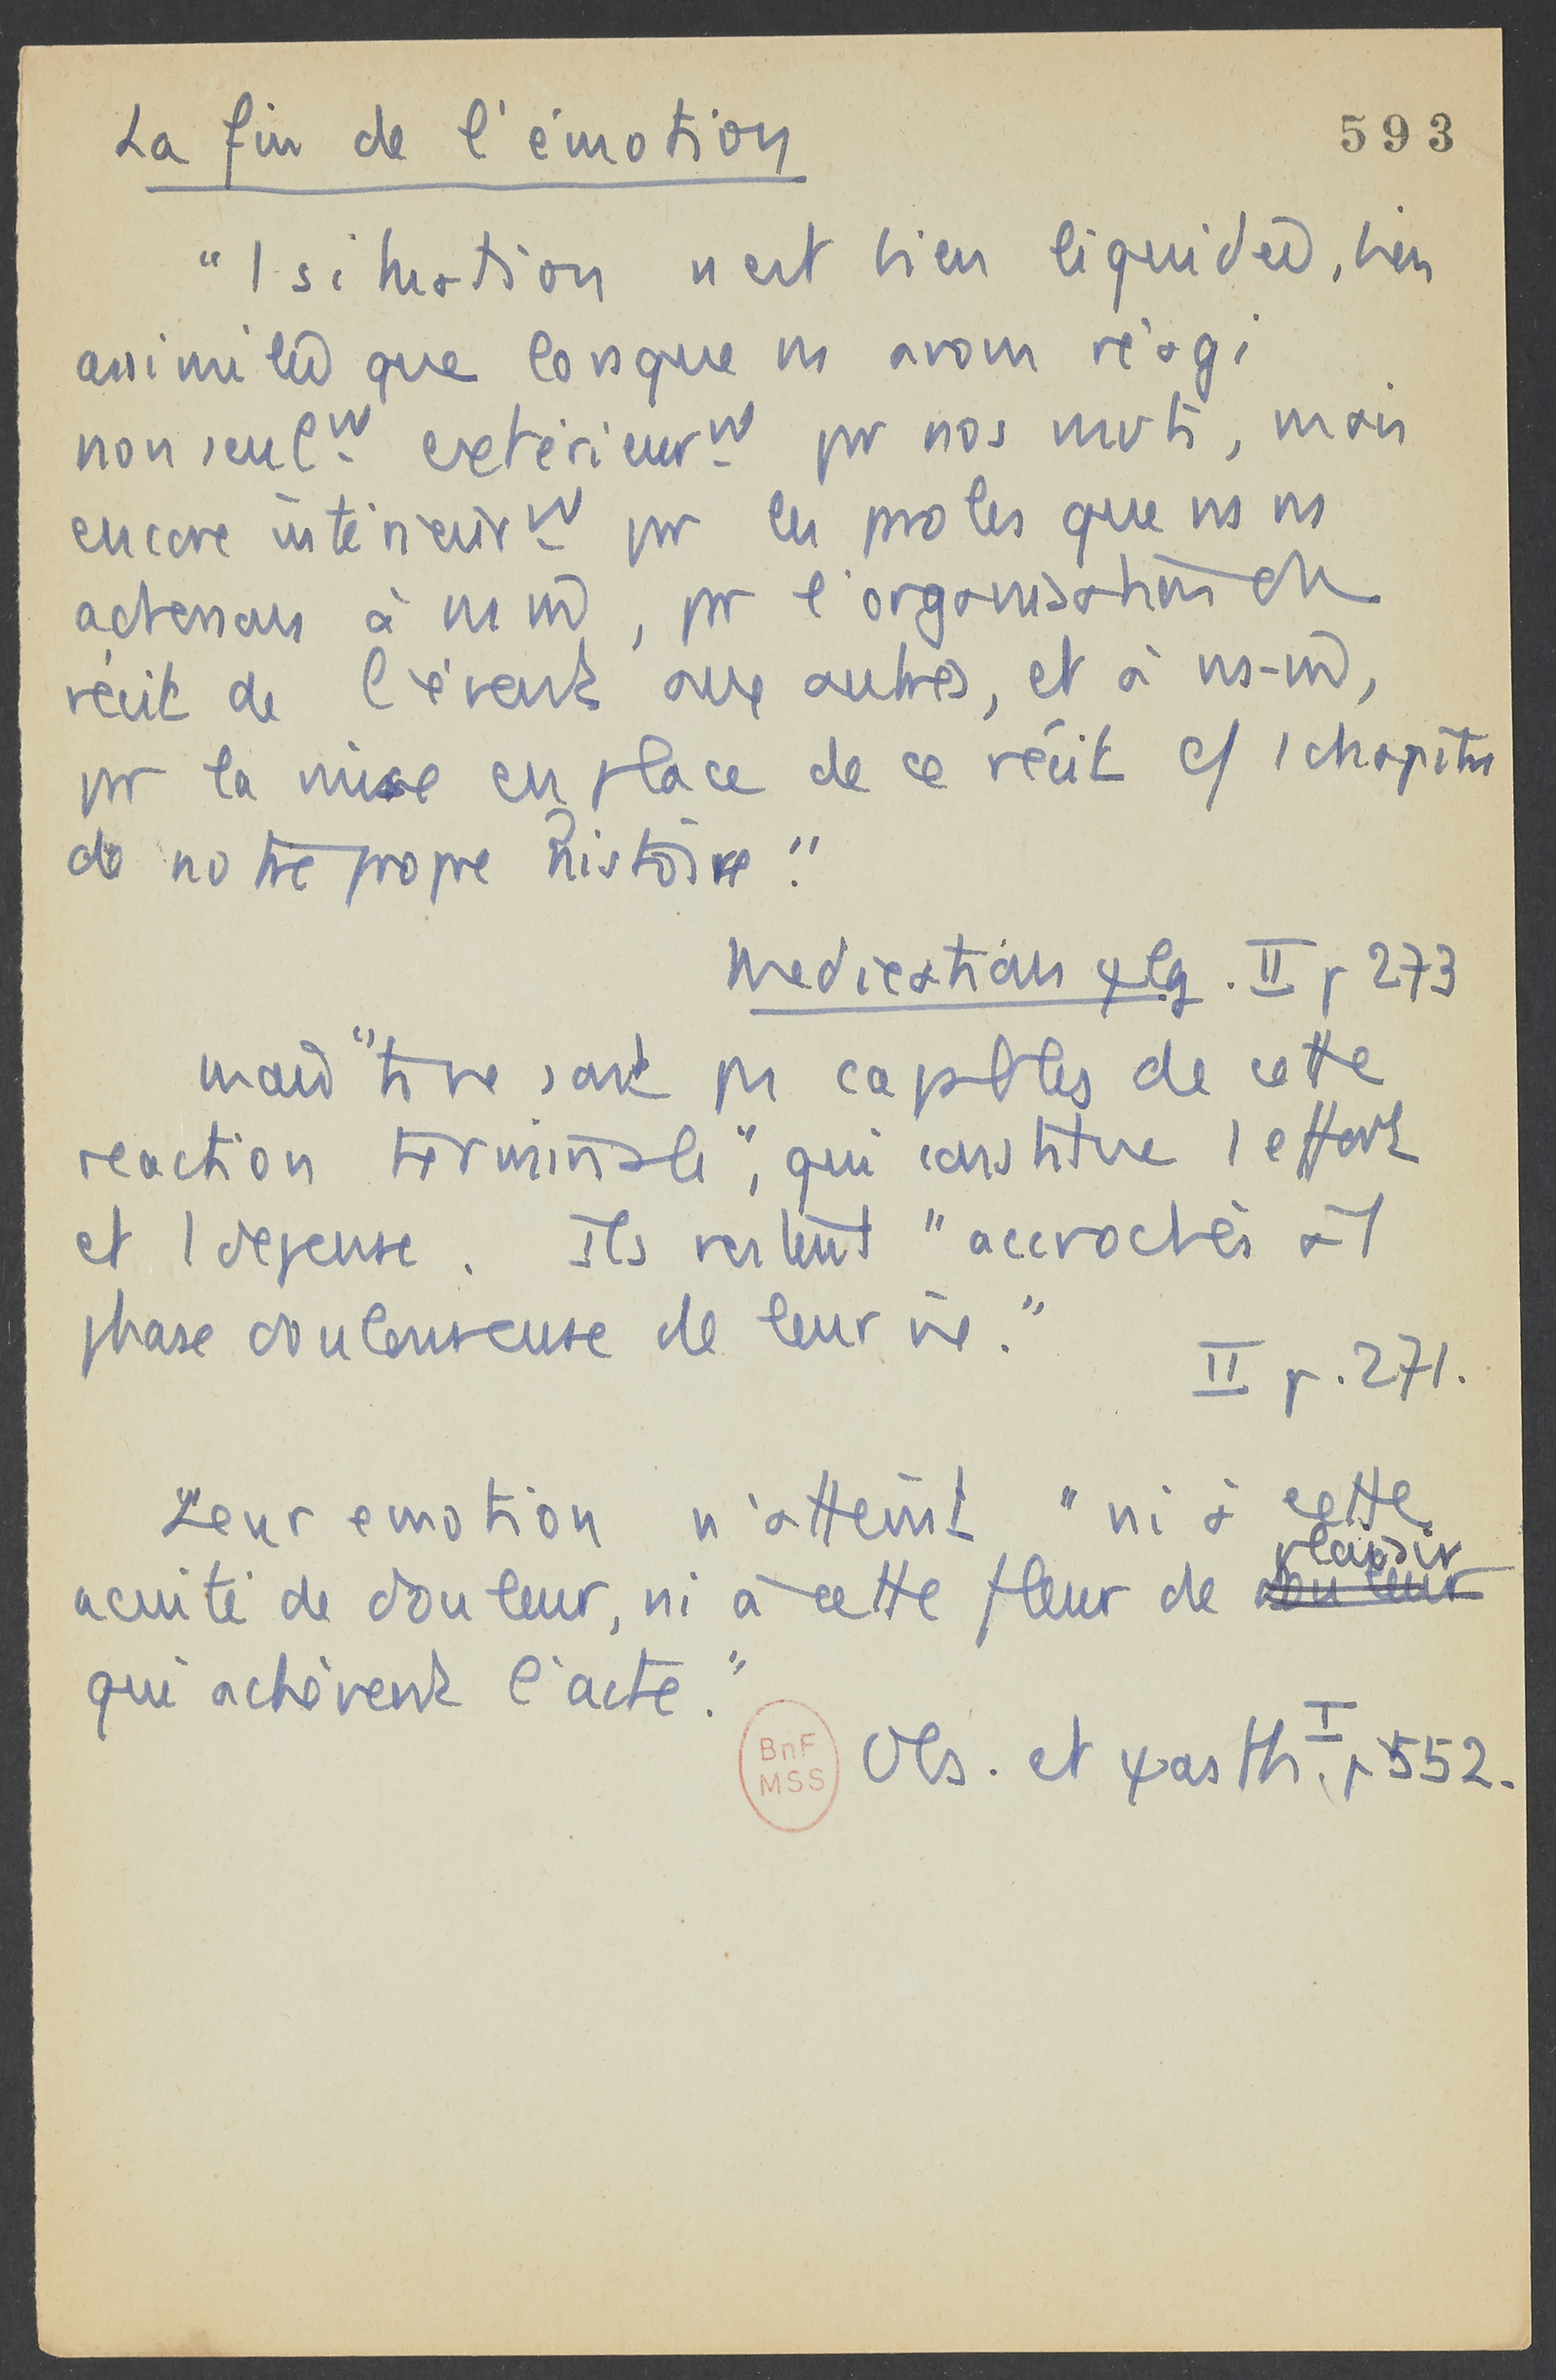 La fin de l'émotion
593
"1 situation n'est bien liquidée, bien
assimilée que lorsque ns avons réagi
non seulᵐᵗ extérieurᵐᵗ pr nos mvts, mais
encore intérieurᵐᵗ pr les paroles que ns ns
adressons à ns m̂, pr l'organisation du
récit de l'évent aux autres, et à ns-m̂,
pr la mise en place de ce récit c/ 1 chapitre
de notre propre histoire."
Medications ψlg. II p 273
"ne sont pas capables de cette
reaction terminale", qui constitue 1 effort
et 1 depense. Ils restent "accrochés à 1
phase douloureuse de leur vie."
II p. 271.
Leur emotion n'atteint "ni à cette
plaisir
acuité de douleur, ni à cette fleur de douleur
qui achèvent l'acte."
BnF
MSS
Obs. et ψasth. I p 552.